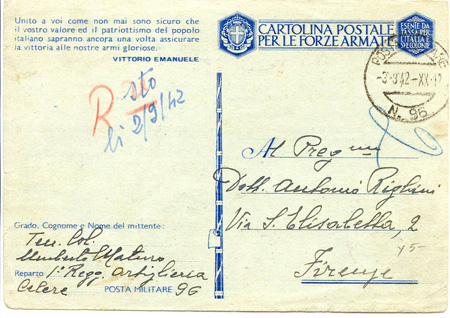 Unito a voi come non mai sono sicuro che
il vostro valore ed il patriottismo del popolo
italiano sapranno ancora una volta assicurare
la vittoria alle nostre armi gloriose.
VITTORIO EMANUELE
CARTOLINA POSTALE
PER LE FORZE ARMATE
ESENTE DA
TASSA PER
L'ITALIA E
SUE COLONIE
POSTA
-3-9-42-XX-12
N. 96
R sto
li 2/9/42
Al Preg mo
Dott. Antonio Righini
Via S. Elisabetta, 2
Firenze
Grado, Cognome e Nome del mittente:
Ten. Col.
Umberto Maturo
Reparto 1° Regg. Artiglieria
Celere
POSTA MILITARE 96